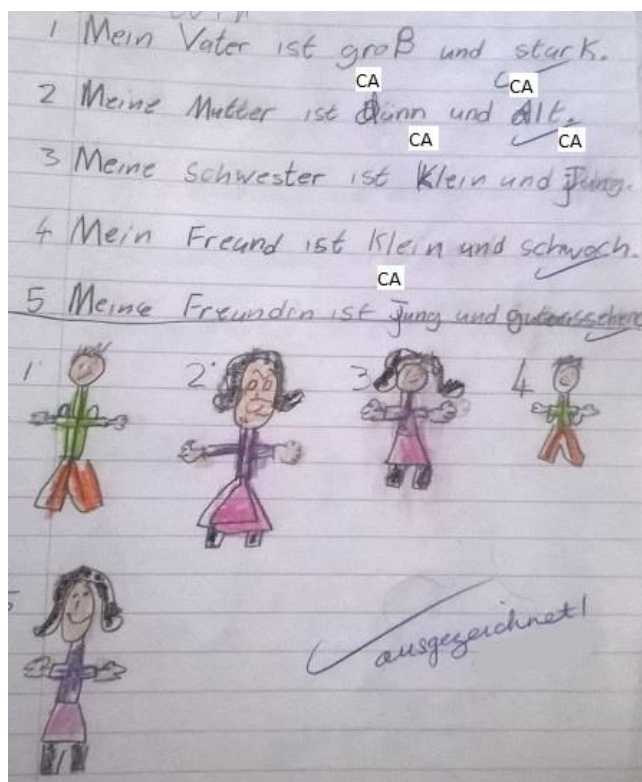 1 Mein Vater ist groß und stark.
CA CA
2 Meine Mutter ist Dünn und Alt.
CA CA
3 Meine Schwester ist Klein und Jung.
4 Mein Freund ist Klein und schwach.
CA
5 Meine Freundin ist Jung und gutaussehend
1 2 3 4
ausgezeichnet!